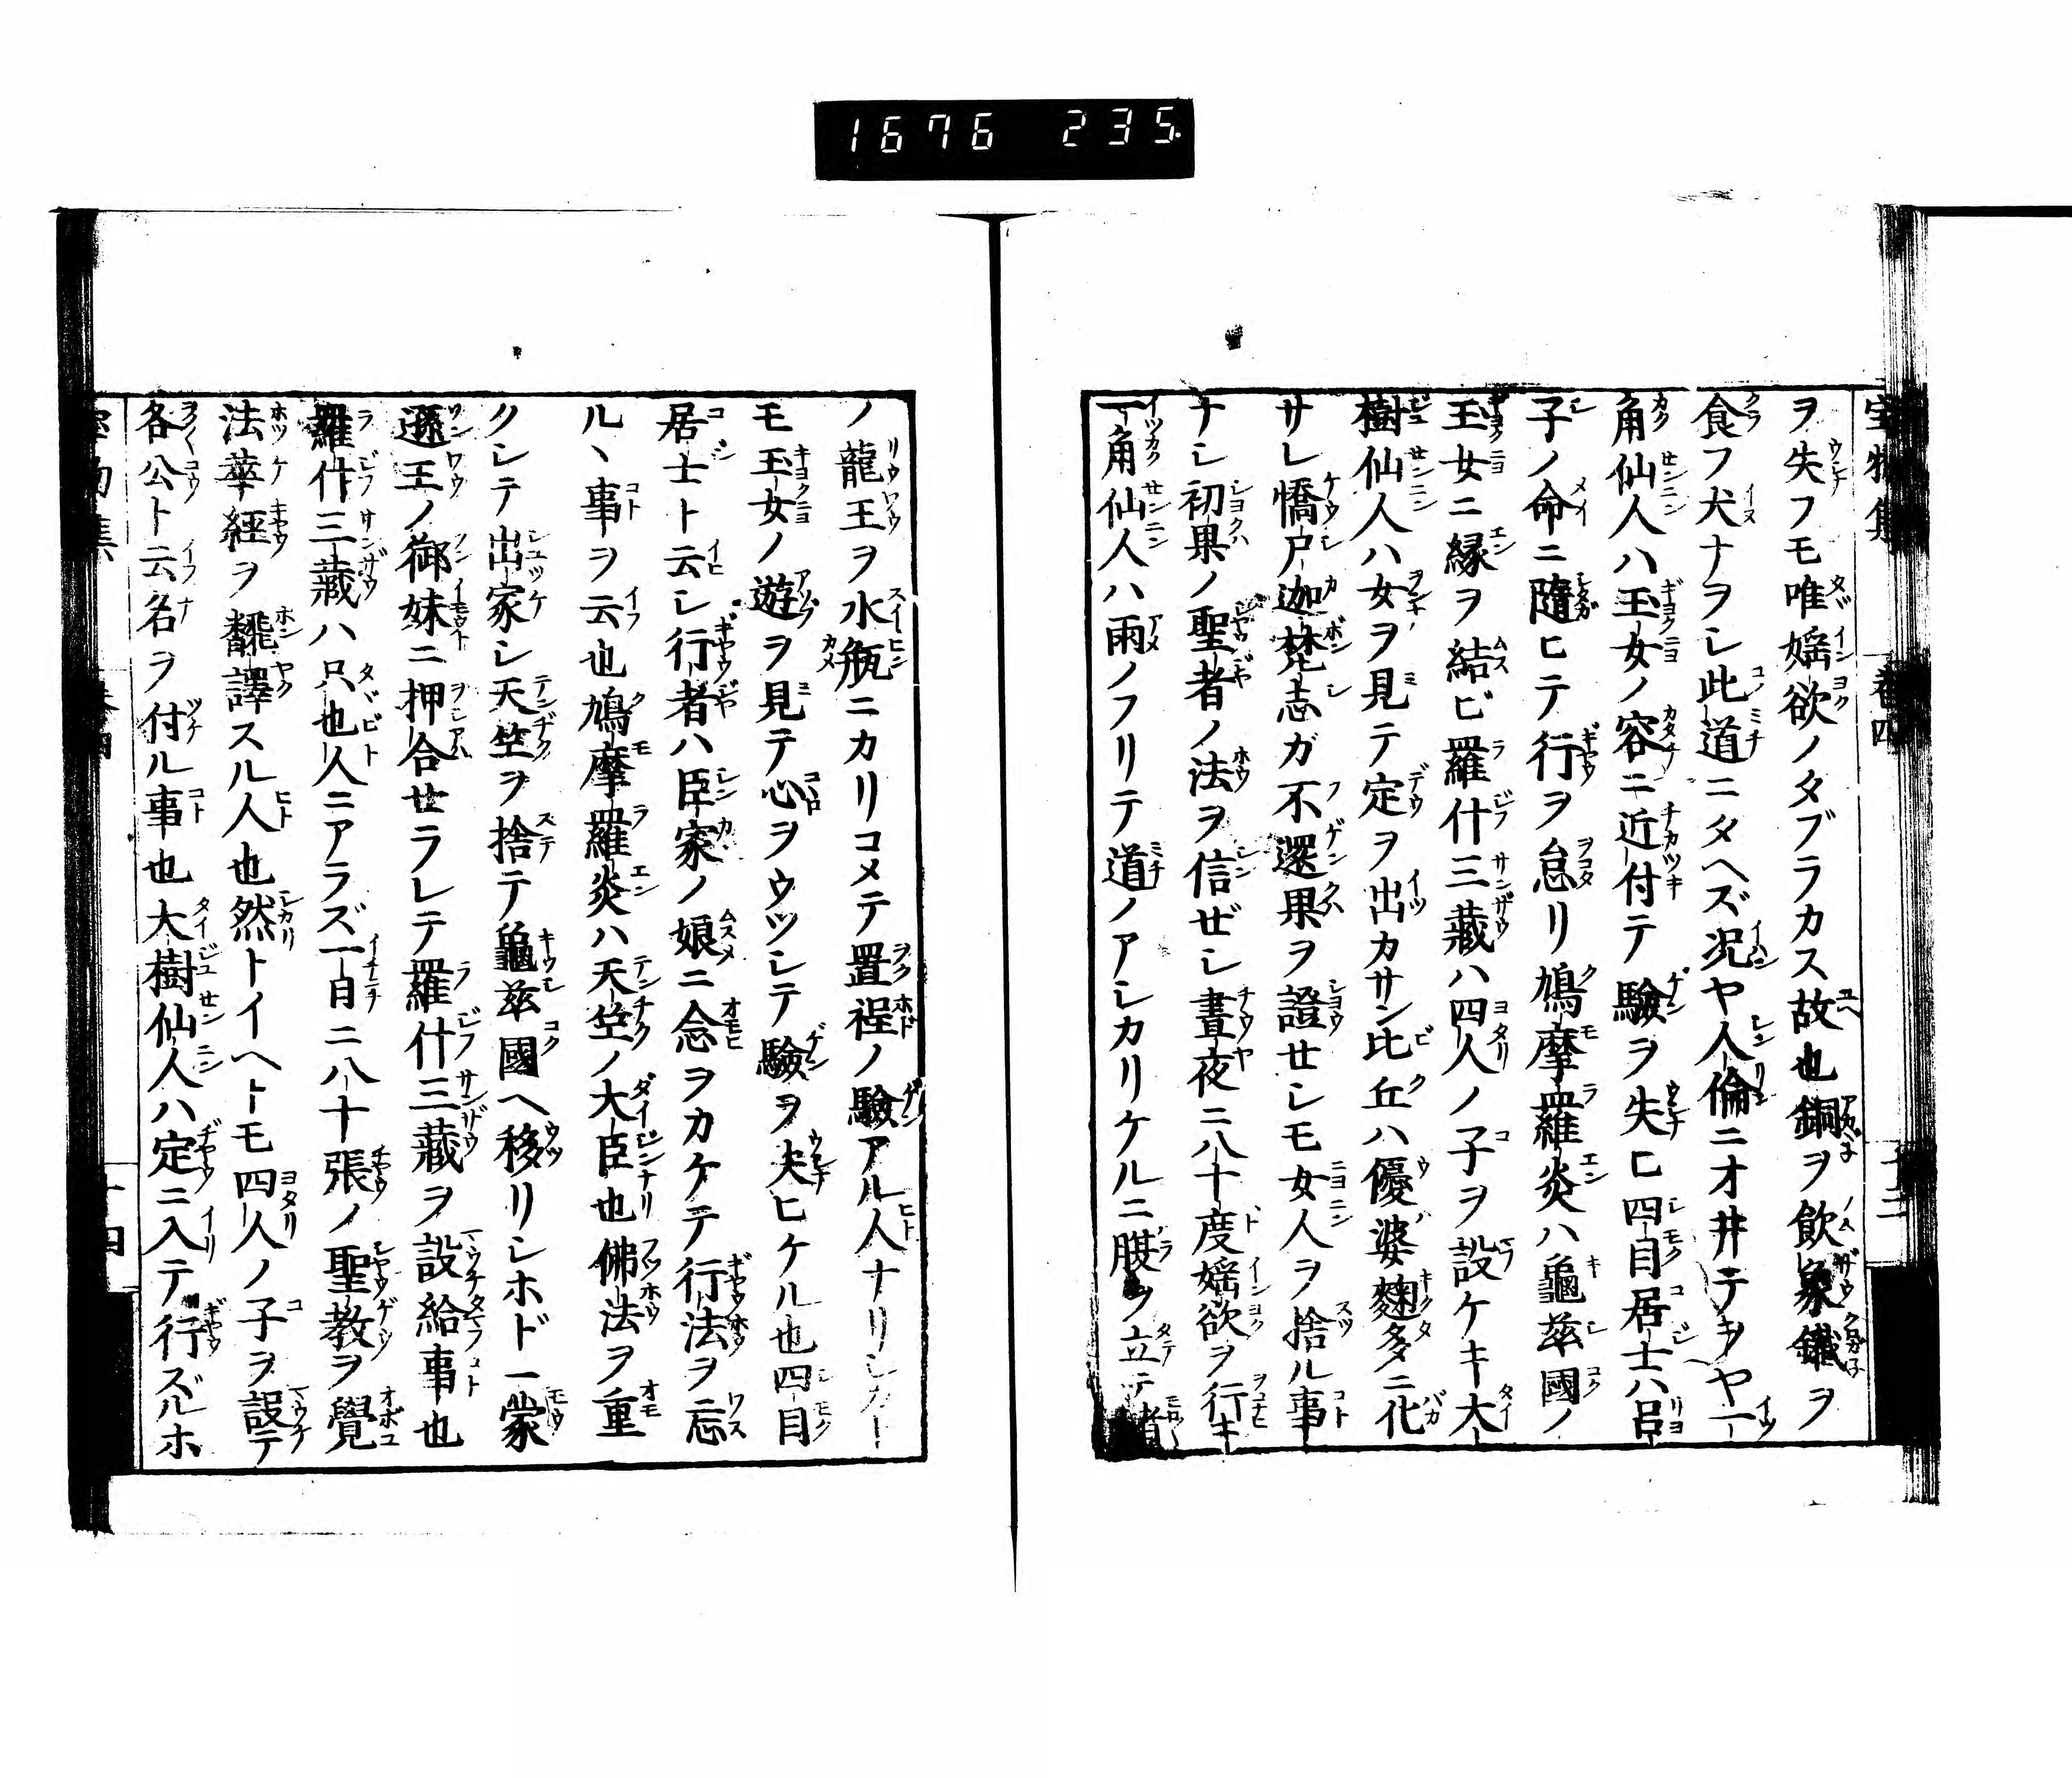 1676 235
ヲ失フモ唯婬欲ノタブラカス故也銅ヲ飲象鐵ヲ
食フ犬ナヲシ此道ニタヘズ况ヤ人倫ニオ井テヲヤ一
角仙人ハ玉女ノ容ニ近付テ驗ヲ失ヒ四目居士ハ呂
子ノ命ニ隨ヒテ行ヲ怠リ鳩摩羅炎ハ龜茲國ノ
玉女ニ縁ヲ結ビ羅什三藏ハ四人ノ子ヲ設ケキ大
樹仙人ハ女ヲ見テ定ヲ出カサン比丘ハ優婆麹多ニ化
サレ憍尸迦梵志ガ不還果ヲ證セシモ女人ヲ捨ル事
ナシ初果ノ聖者ノ法ヲ信ぜシ晝夜ニ八十度婬欲ヲ行キ
一角仙人ハ雨ノフリテ道ノアシカリケルニ腹ヲ立テ諸
ノ龍王ヲ水瓶ニカリコメテ置程ノ驗アル人ナリシカト
モ玉女ノ遊ヲ見テ心ヲウツシテ驗ヲ失ヒケル也四目
居士ト云シ行者ハ臣家ノ娘ニ念ヲカケテ行法ヲ忘
ルヽ事ヲ云也鳩摩羅炎ハ天竺ノ大臣也佛法ヲ重
クシテ出家シ天竺ヲ捨テ龜茲國ヘ移リシホド一蒙
遜王ノ御妹ニ押合セラレテ羅什三藏ヲ設給事也
羅什三藏ハ只也人ニアラズ一日ニ八十張ノ聖教ヲ覺
法華經ヲ飜譯スル人也然トイヘトモ四人ノ子ヲ設テ
各公ト云名ヲ付ル事也大樹仙人ハ定ニ入テ行ズルホ